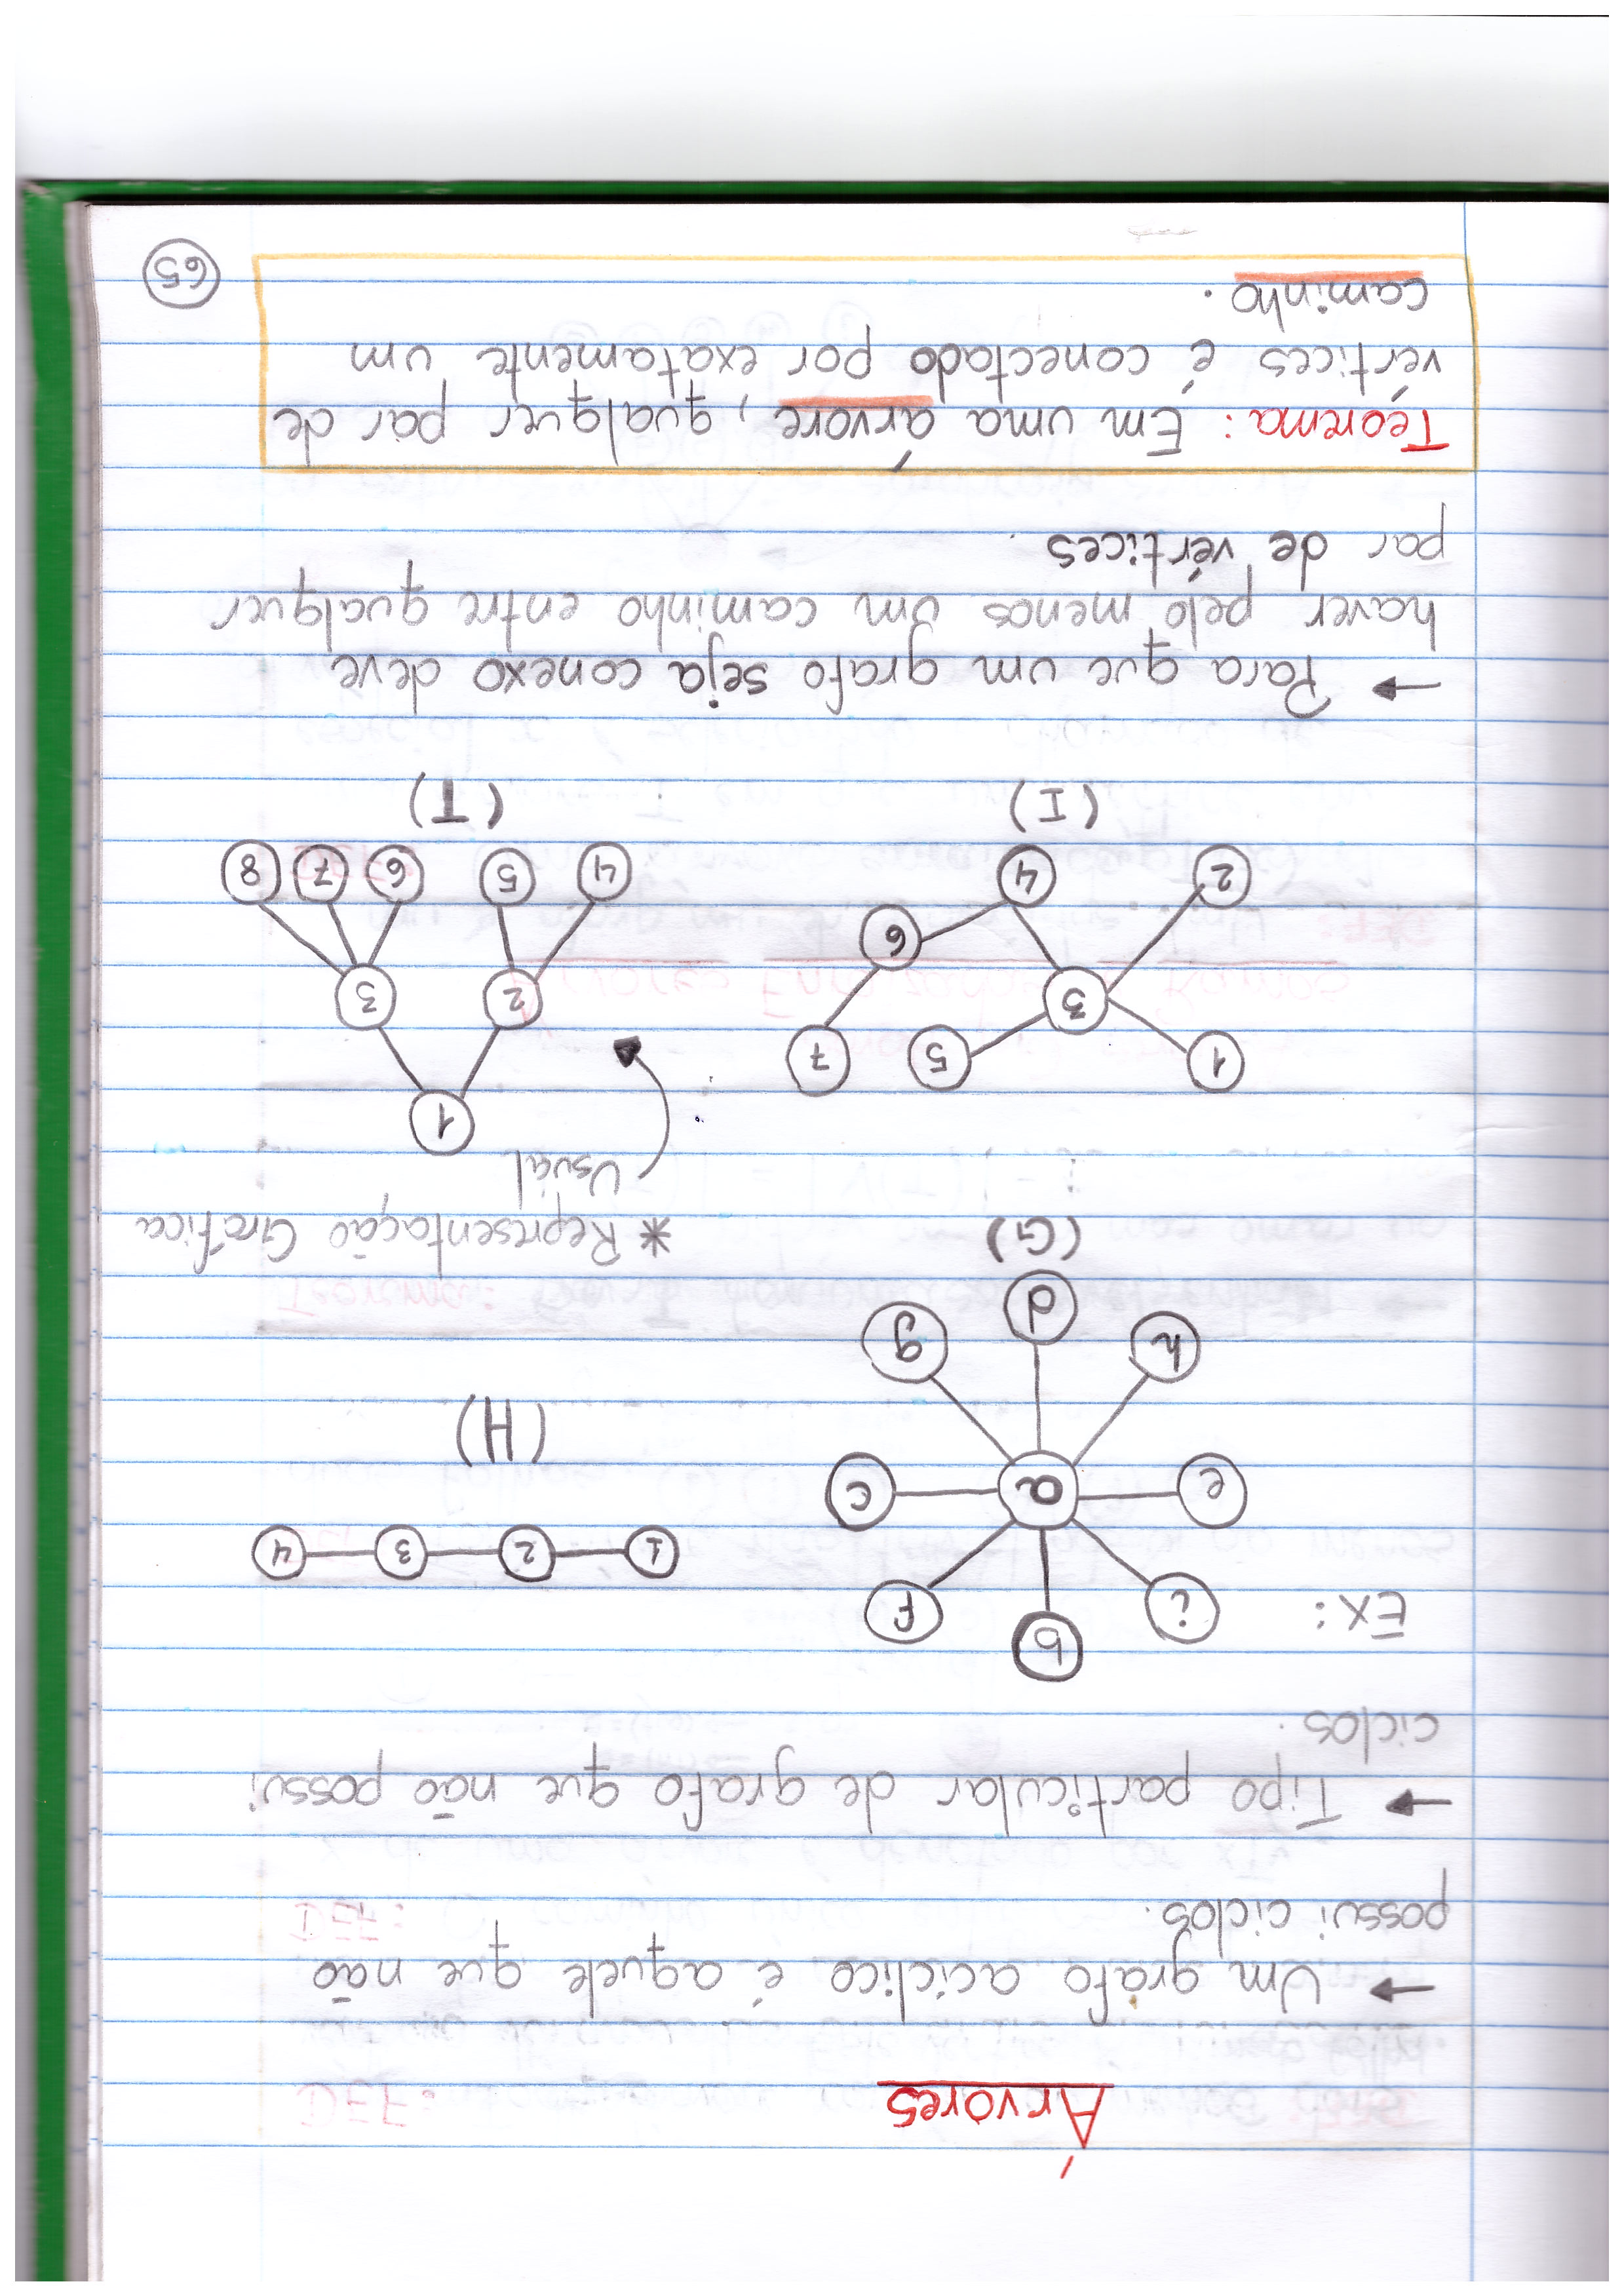 Árvores
→ Um grafo acíclico é aquele que não
possui ciclos.
→ Tipo particular de grafo que não possui
ciclos.
Ex:
i b f
e a c
h d g
(G)
1 2 3 4
(H)
* Representação Gráfica
Usual
1 5 7
3
6
2 4
(I)
1
2 3
4 5 6 7 8
(T)
→ Para que um grafo seja conexo deve
haver pelo menos um caminho entre qualquer
par de vértices.
Teorema: Em uma árvore, qualquer par de
vértices é conectado por exatamente um
caminho.
65